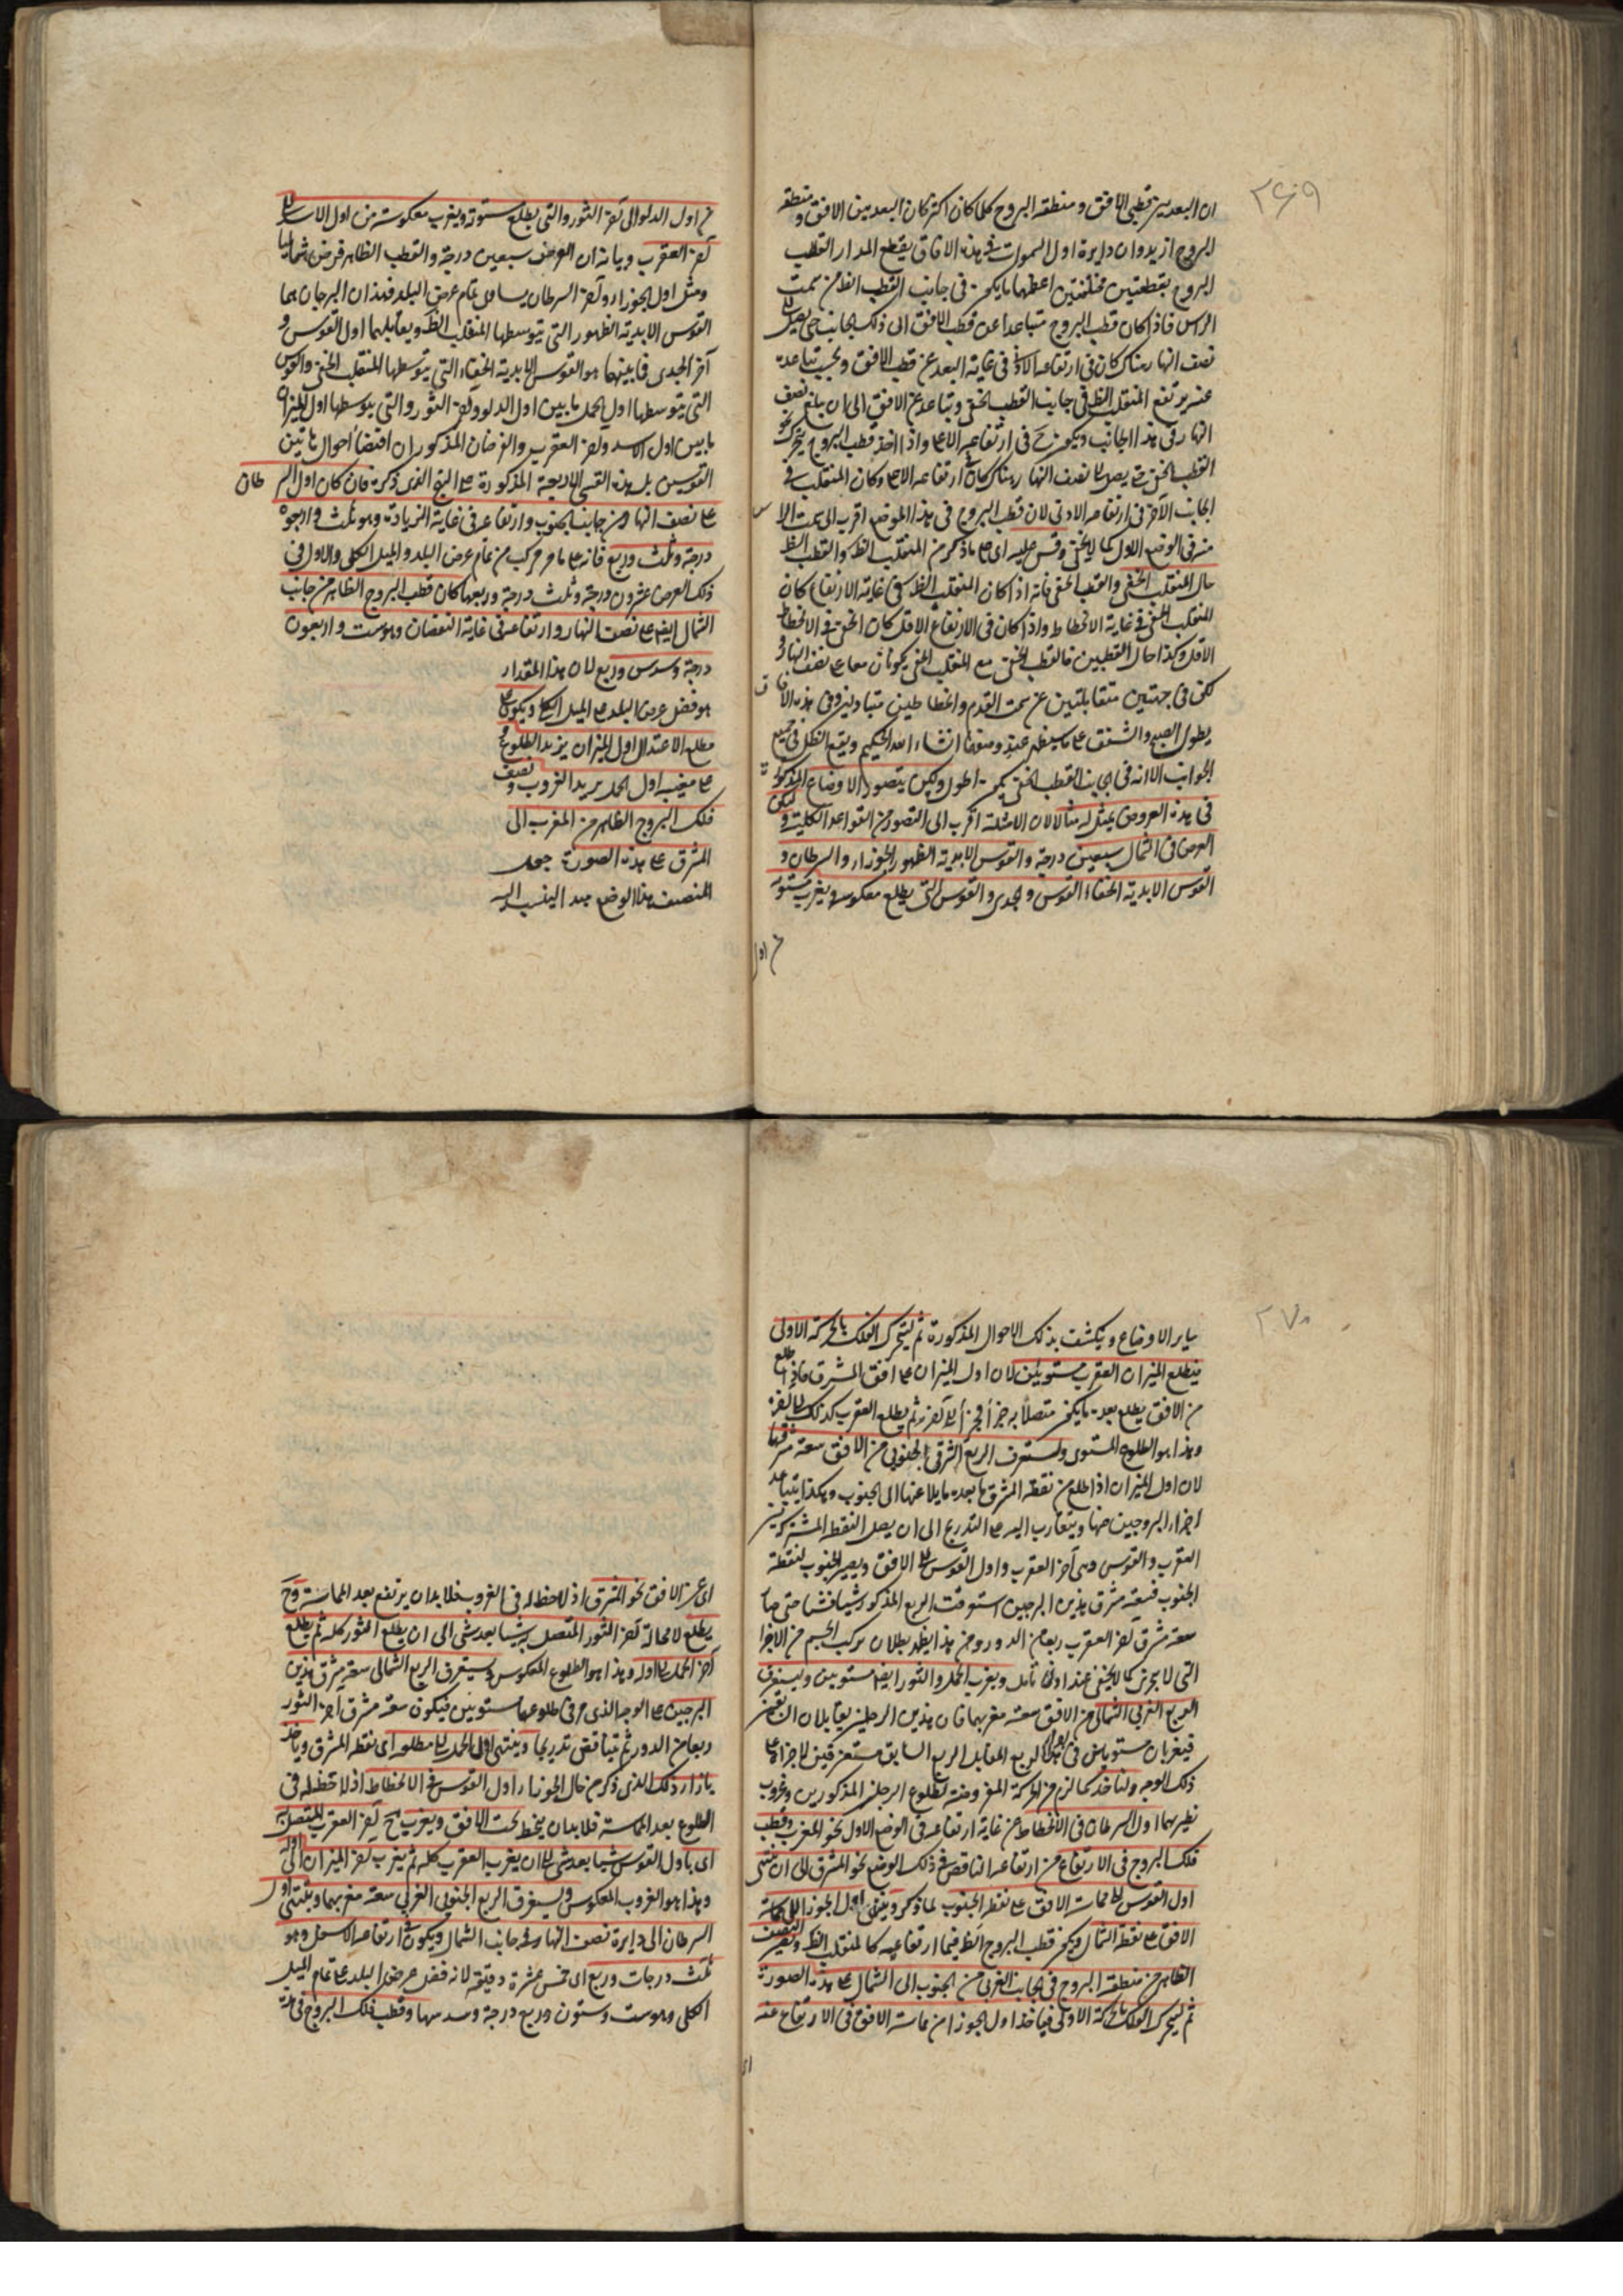 ٢٦٩
ان البعد بين قطبي الافق ومنطقه البروج كلما كان اكثر كان البعد بين الافق ومنطقه
البروج ازيد وان دايرة اول السموات في هذه الافاق يقطع المدار القطب
البروج بقطعتين مختلفتين اعظمها ما يكون في جانب القطب الظ من سمت
الراس فاذا كان قطب البروج متباعدا عن قطب الافق الى ذلك الجانب حتى يصل الى
نصف النهار هناك كان في ارتفاعه الادنى في غاية البعد عن قطب الافق وبحسب تباعده
عنه يرتفع المنقلب الظ في جانب القطب الخفي ويتباعد عن الافق الى ان يبلغ نصف
النهار في هذا الجانب ويكون ح في ارتفاعه الاعلى واذا اخذ قطب البروج يتحرك نحو
القطب الخفي حتى يصل الى نصف النهار هناك كان ارتفاعه الاعلى وكان المنقلب في
الجانب الآخر في ارتفاعه الادنى لان قطب البروج في هذا الموضع اقرب الى سمت الراس
منه في الوضع الاول كما لا يخفى وقس عليه اى على ما ذكر من المنقلب الظ والقطب الظ
حال المنقلب الخفي والقطب الخفي فانه اذا كان المنقلب الظ في غاية الارتفاع كان
المنقلب الخفي في غاية الانحطاط واذا كان في الارتفاع الاقل كان الخفي في الانحطاط
الاقل وكذا حال القطبين فالقطب الخفي مع المنقلب الخفي يكونان معا على نصف النهار
لكن في جهتين متقابلتين عن سمت القدم وانحطاطين متبادلين وفي هذه الافاق
يطول الصبح والشفق على ما سيظهر عندمنونها انشاء الله الحكيم ويقع الظل في جميع
الجوانب الا انه في جانب القطب الخفي يكون اطول ولكن يتصور الاوضاع المذكورة
في هذه العروض يمثل له مثالا لان الامثلة اقرب الى التصور من القواعد الكلية وليكن
العرض في الشمال سبعين درجة والقوس الابدية الظهور الجوزاء والسرطان و
القوس الابدية الخفاء القوس والجدى والقوس التى يطلع معكوسة ويغرب مستوية
من اول
من اول الدلو الى آخر الثور والتى يطلع مستوية ويغرب معكوسة من اول الاسد الى
آخر العقرب وبيانه ان العرض سبعين درجة والقطب الظاهر فرض شماليا
وميل اول الجوزاء وآخر السرطان يساوى تمام عرض البلد فهذان البرجان هما
القوس الابدية الظهور التى يتوسطها المنقلب الظ ويقابلهما اول القوس و
آخر الجدى فما بينهما هو القوس الابدية الخفاء التى يتوسطها المنقلب الخفي والقوس
التى يتوسطها اول الحمل ما بين اول الدلو وآخر الثور والتى يتوسطها اول الميزان
ما بين اول الاسد وآخر العقرب والفرضان المذكوران اقتضا احوال هاتين
القوسين بل هذه القسى الاربعة المذكورة على النهج الذى ذكره فان كان اول السرطان
على نصف النهار من جانب الجنوب وارتفاعه في غاية الزيادة وهو ثلث واربعون
درجة وثلث وربع فانه على ما مر مركب من تمام عرض البلد والميل الكلى والاول في
ذلك العرض عشرون درجة وثلث درجة وربعها كان قطب البروج الظاهر من جانب
الشمال ايضا على نصف النهار وارتفاعه في غاية النقصان وهو ست واربعون
درجة وسدس وربع لان هذا المقدار
هو فضل عرض البلد على الميل الكلى ويكون على
مطلع الاعتدال اول الميزان يزيد الطلوع و
على مغيب اول الحمل يريد الغروب ونصف
فلك البروج الظاهر من المغرب الى
المشرق على هذه الصورة جعل
المنصف هذا الوضع مبدا لينسب اليه
٢٧٠
ساير الاوضاع وينكشف بذلك الاحوال المذكورة ثم ليتحرك الفلك بالحركة الاولى
فيطلع الميزان العقرب مستويين لان اول الميزان على افق المشرق فاذا طلع
من الافق يطلع بعده ما يكون متصلا به جزأ فجزأ الى آخره ثم يطلع العقرب كذلك الى آخره
وهذا هو الطلوع المستوى وتستغرق الربع الشرقى الجنوبى من الافق سعة مشرقها
لان اول الميزان اذا طلع من نقطه المشرق ما بعده مايلا عنها الى الجنوب وهكذا يتباعد
اجزاء البروجين عنها ويتقارب اليه على التدرج الى ان يصل النقطة المشتركة بين
العقرب والقوس وهى آخر العقرب واول القوس الى الافق ويصير الجنوب لنقطة
الجنوب فسعة مشرق هذين البرجين استوفت الربع المذكور شيا فشيا حتى صار
سعة مشرق آخر العقرب ربعا من الدور ومن هذا يظهر بطلان تركب الجسم من الاجزا
التى لا يتجزى كما لا يخفى عند اولى تامل ويغرب الحمل والثور ايضا مستويين ويستغرق
الربع الغربى الشمالى من الافق سعة مغربهما فان هذين البرجين يقابلان الاولين
فيغربان مستويان في الربع المقابل الربع السابق مستغرقين لاجزائه على
ذلك الوجه ولياخذ كما لزم من الحركة المفروضة لطلوع البرجين المذكورين وغروب
نظيريهما اول السرطان في الانحطاط عن غاية ارتفاعه في الوضع الاول نحو المغرب وقطب
فلك البروج في الارتفاع عن ارتفاعه الناقص في ذلك الوضع نحو المشرق الى ان ينتهى
اول القوس الى مماسة الافق على نقطه الجنوب لما ذكر وينتهى اول الجوزا الى مماسة
الافق على نقطة الشمال ويكون قطب البروج الظ فيما ارتفاعيه كالمنقلب الظ ويصير النصف
الظاهر من منطقه البروج في الجانب الغربى من الجنوب الى الشمال على هذه الصورة
ثم ليتحرك الفلك بالحركة الاولى فياخذ اول الجوزا من مماسة الافق في الارتفاع عنه
اى
اى عن الافق نحو المشرق اذ لا حظ له في الغروب فلا بد ان يرتفع بعد المماسة وح
يطلع لا محالة آخر الثور المتصل به شيا بعد شى الى ان يطلع الثور كله ثم يطلع
آخر الحمل الى اوله وهذا هو الطلوع المعكوس ويستغرق الربع الشمالى سعة مشرق هذين
البرجين على الوجه الذى مر في طلوعهما مستويين فيكون سعة مشرق آخر الثور
ربعا من الدور ثم يتناقض تدريجا وينتهى اول الحمل الى مطلعه اى نقطه المشرق وياخذ
بازاء ذلك الذى ذكر من حال الجوزاء اول القوس في الانحطاط اذ لا حظ له في
الطلوع بعد المماسة فلا بد ان ينحط تحت الافق ويغرب ح آخر العقرب المتصل به
اى باول القوس شيا بعد شى الى ان يغرب العقرب كله ثم يغرب آخر الميزان الى اوله
وهذا هو الغروب المعكوس ويستغرق الربع الجنوبى الغربى سعة مغربهما وينتهى اول
السرطان الى دايرة نصف النهار في جانب الشمال ويكون في ارتفاعه الاسفل وهو
ثلث درجات وربع اى خمس عشرة دقيقة لانه فضل عرض البلد على تمام الميل
الكلى وهو ست وستون وربع درجة وسدسها وقطب فلك البروج في هذه